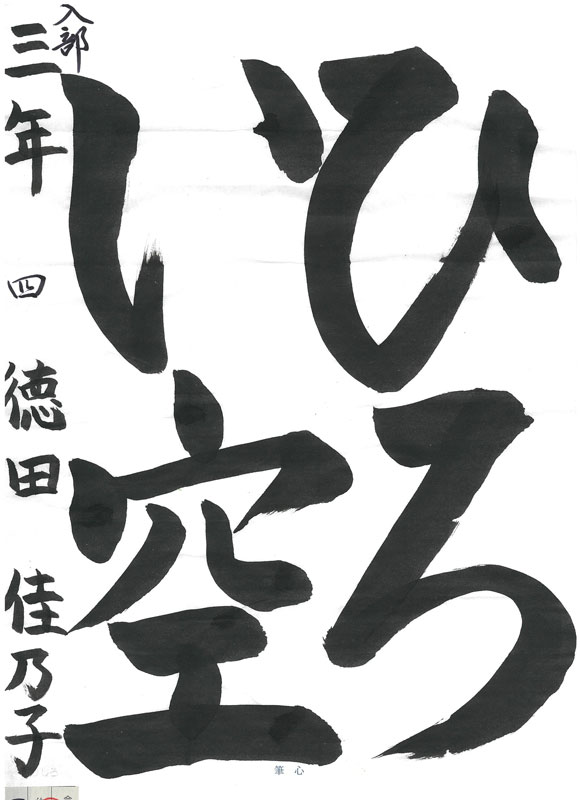 ひろ
い空
入部
三年 四 徳田 佳乃子
心筆